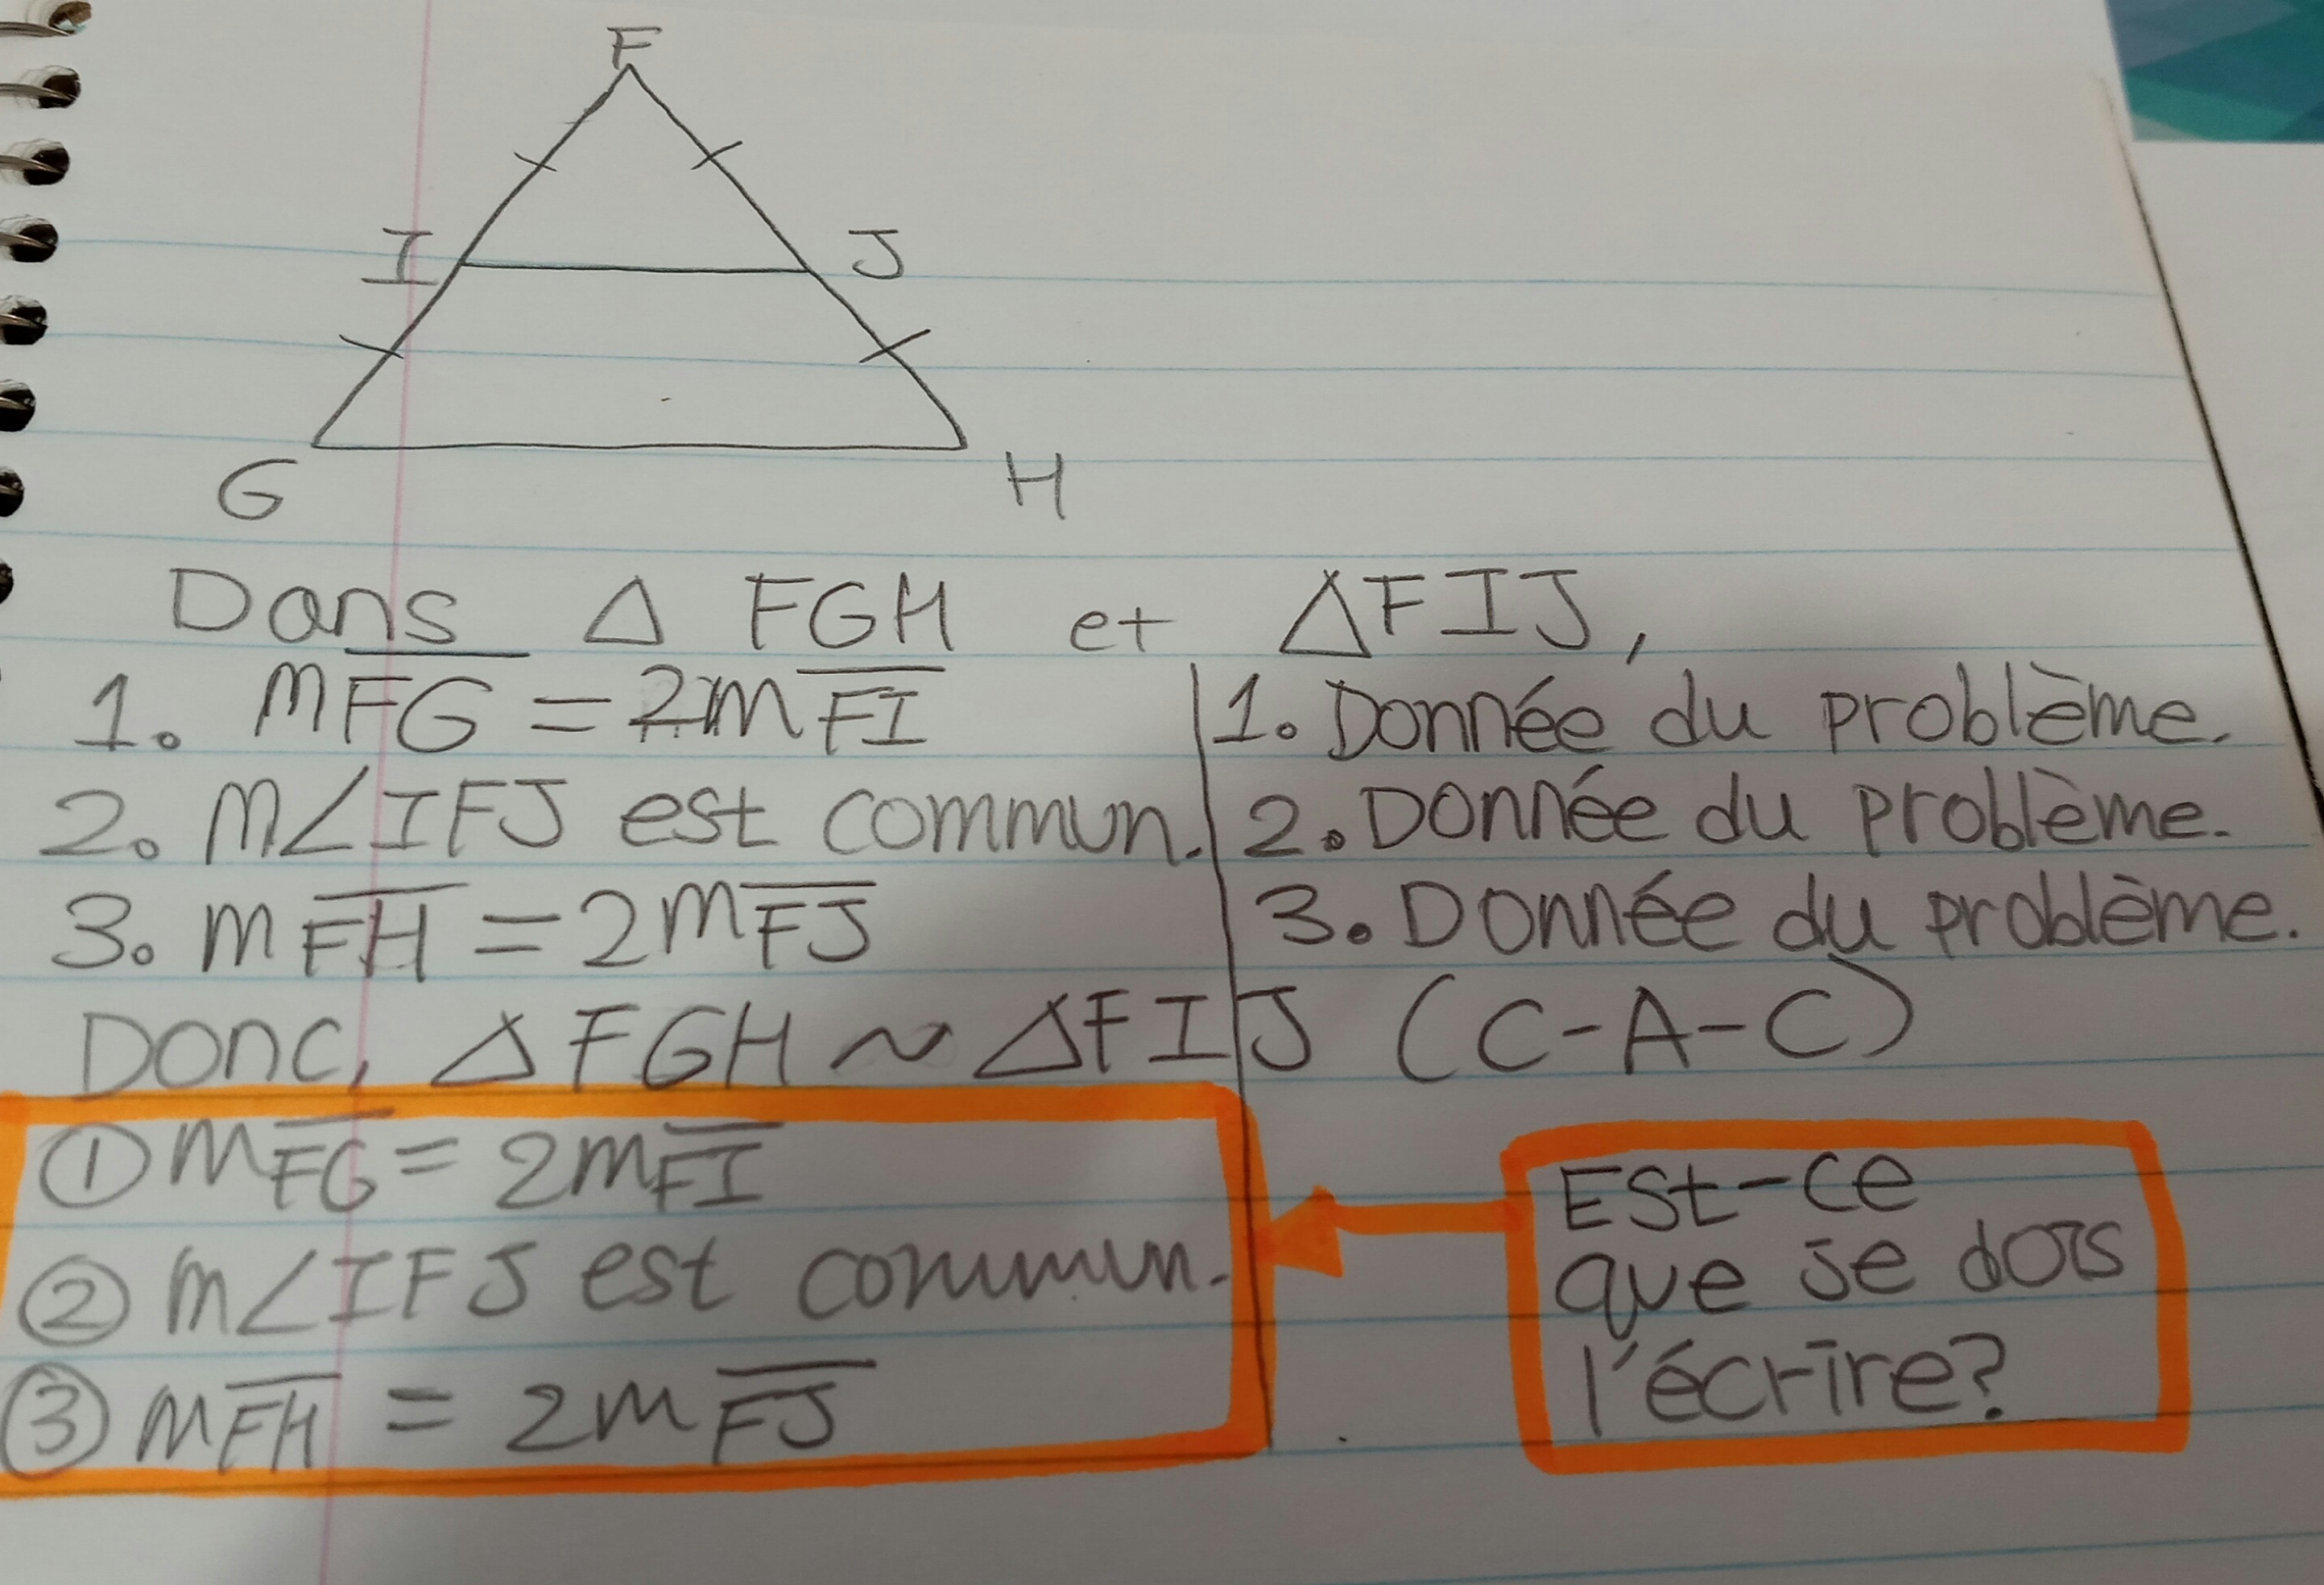 F
I J
G H
Dans △ FGH et △FIJ,
1. m\overline{FG} = 2m\overline{FI} 1. Donnée du problème.
2. m∠IFJ est commun. 2. Donnée du problème.
3. m\overline{FH} = 2m\overline{FJ} 3. Donnée du problème.
Donc, △FGH ~ △FIJ (C-A-C)
① m\overline{FG} = 2m\overline{FI}
② m∠IFJ est commun.
③ m\overline{FH} = 2m\overline{FJ}
Est-ce
que je dois
l'écrire?